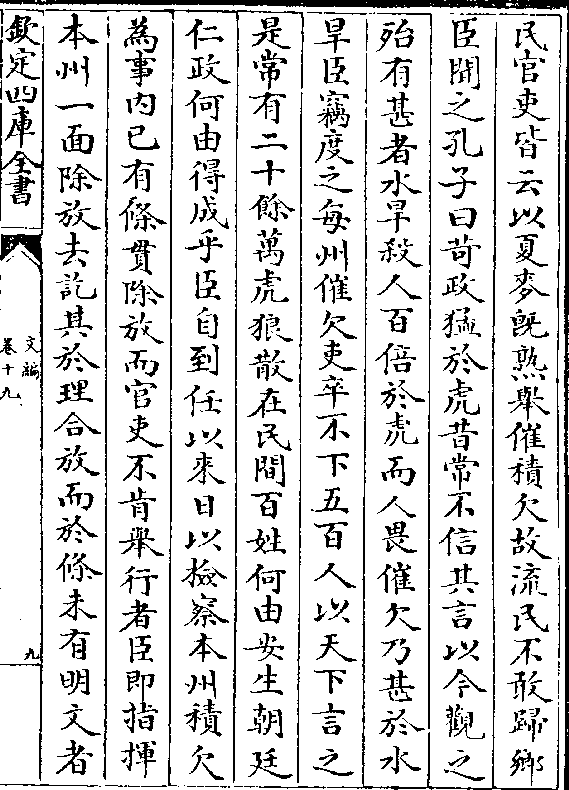 民官吏皆云以夏麥既熟舉催積欠故流民不敢歸鄉
臣聞之孔子曰苛政猛於虎昔常不信其言以今觀之
殆有甚者水旱殺人百倍於虎而人畏催欠乃甚於水
旱臣竊度之每州催欠吏卒不下五百人以天下言之
是常有二十餘萬虎狼散在民間百姓何由安生朝廷
仁政何由得成乎臣自到任以來日以檢察本州積欠
為事內已有條貫除放而官吏不肯舉行者臣即指揮
本州一面除放去訖其於理合放而於條未有明文者
欽定四庫全書
文編
卷十九
九